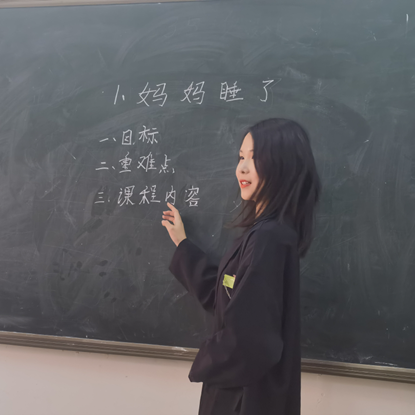 1、妈妈睡了
一、目标
二、重难点
三、课程内容